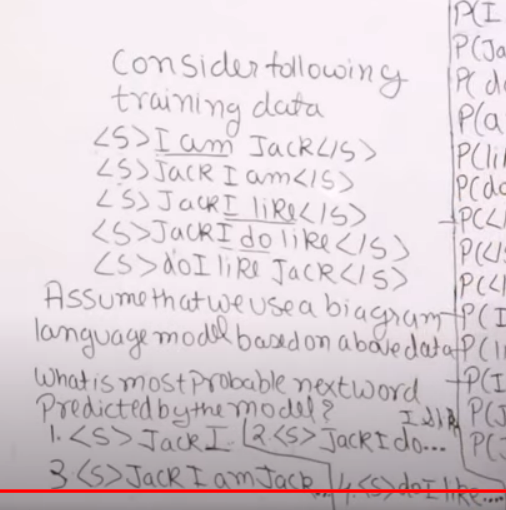 Consider following
training data
<S>I am Jack</S>
<S>Jack I am</S>
<S>Jack I like</S>
<S>Jack I do like</S>
<S>do I like Jack</S>
Assume that we use a biagram
language model based on above data
What is most Probable next word
Predicted by the model?
1. <S> Jack I..
2.<S> Jack I do...
3 <S>Jack I am Jack...
4.<S>do I like....
P(I
P(Ja
P( do
P(a
P(li
P(do
P(</
P(</S
P(</
P(I
P(li
P(I
P(J
P(J